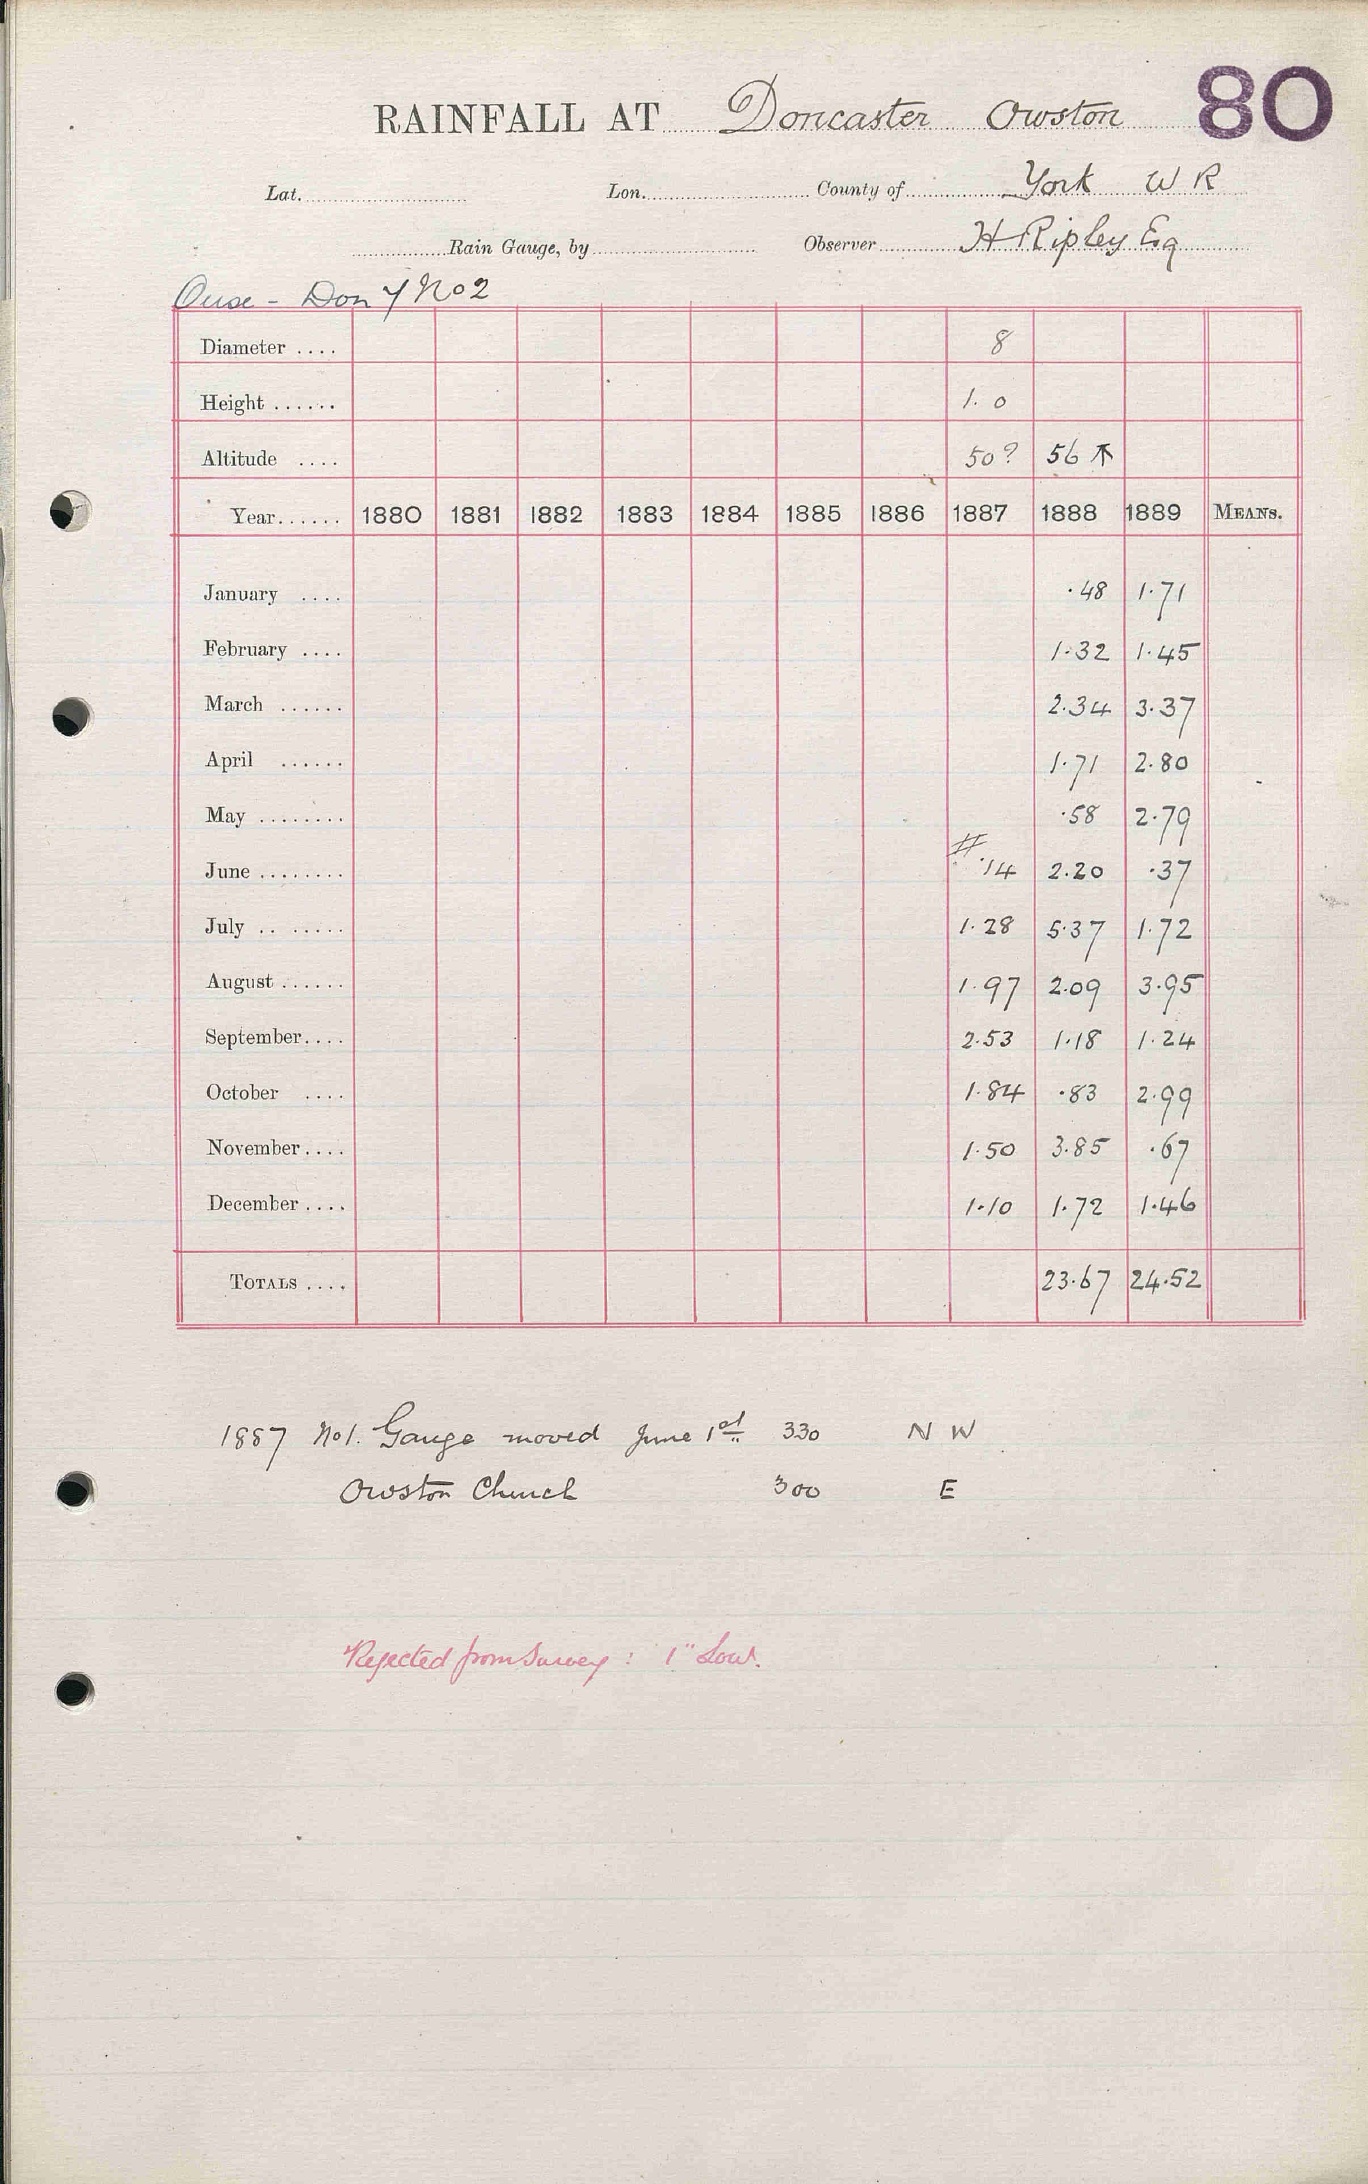 80
RAINFALL AT Doncaster Owston
Lat. Lon. County of York W R
Rain Gauge, by Observer H Ripley Esq
Ouse - Don Y No 2
Diameter .... 8
Height ...... 1. 0
Altitude .... 50? 56 ↑
Year...... 1880 1881 1882 1883 1884 1885 1886 1887 1888 1889 MEANS.
January .... .48 1.71
February .... 1.32 1.45
March ...... 2.34 3.37
April ...... 1.71 2.80
May ........ .58 2.79
June ........ # .14 2.20 .37
July .. ..... 1.28 5.37 1.72
August ...... 1.97 2.09 3.95
September.... 2.53 1.18 1.24
October .... 1.84 .83 2.99
November.... 1.50 3.85 .67
December .... 1.10 1.72 1.46
TOTALS .... 23.67 24.52
1887 No 1. Gauge moved June 1st 330 N W
Owston Church 300 E
Rejected from Survey : 1" Low.